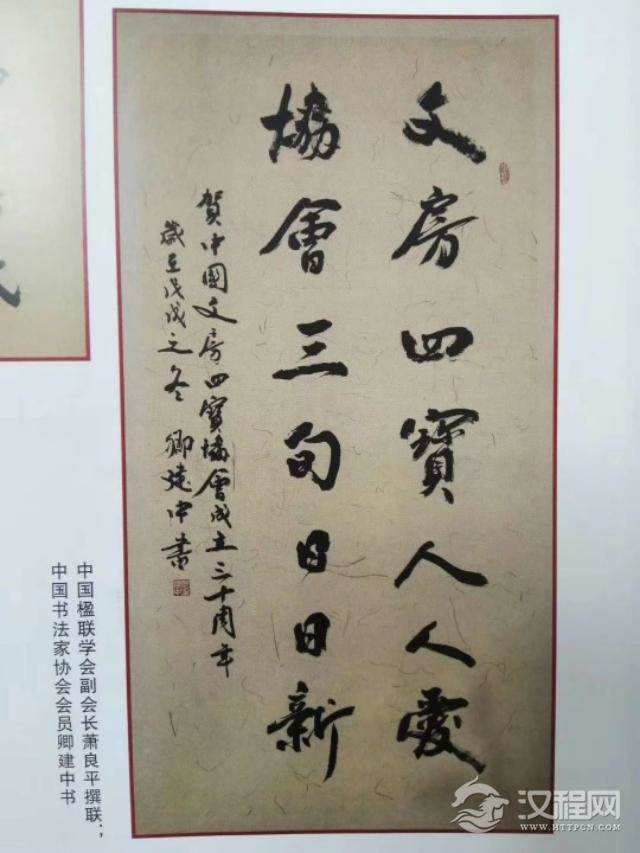 文房四寶人人愛
協會三旬日日新
賀中國文房四寶協會成立三十周年
歲在戊戌之冬 卿建中書
中国楹联学会副会长萧良平撰联；
中国书法家协会会员卿建中书
汉程网
WWW.HTTPCN.COM